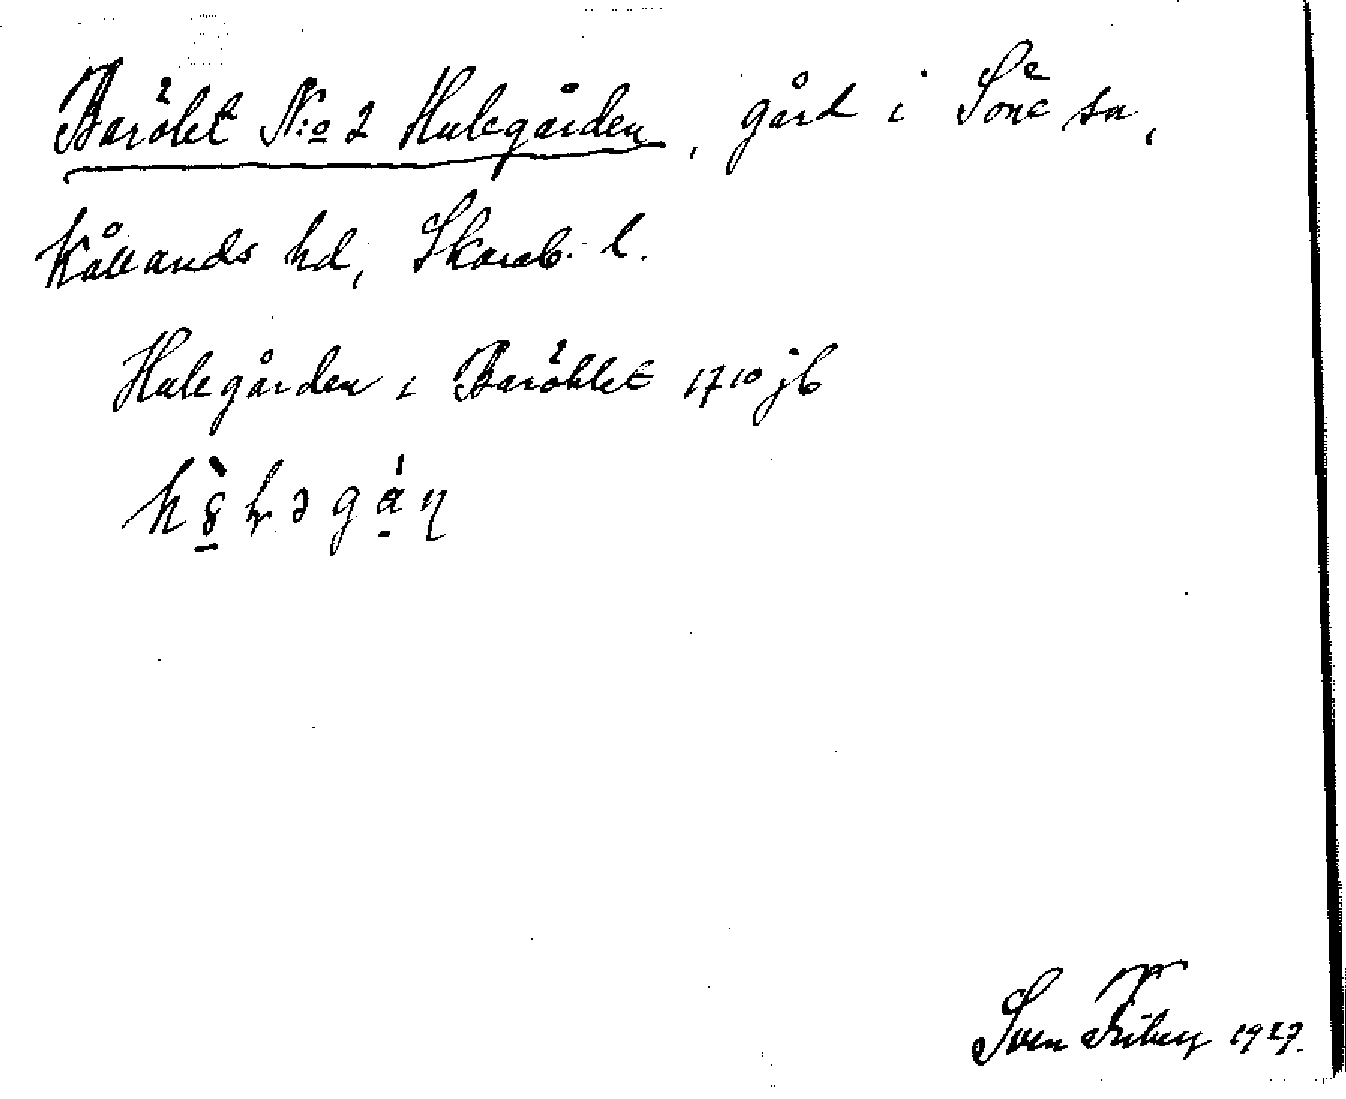 Baröket N:o 2 Hulegården, gård i Söne sn,
Kållands hd, Skarab. l.
Hulegården i Baröklet 1710 jb
Sven Friberg 1927.